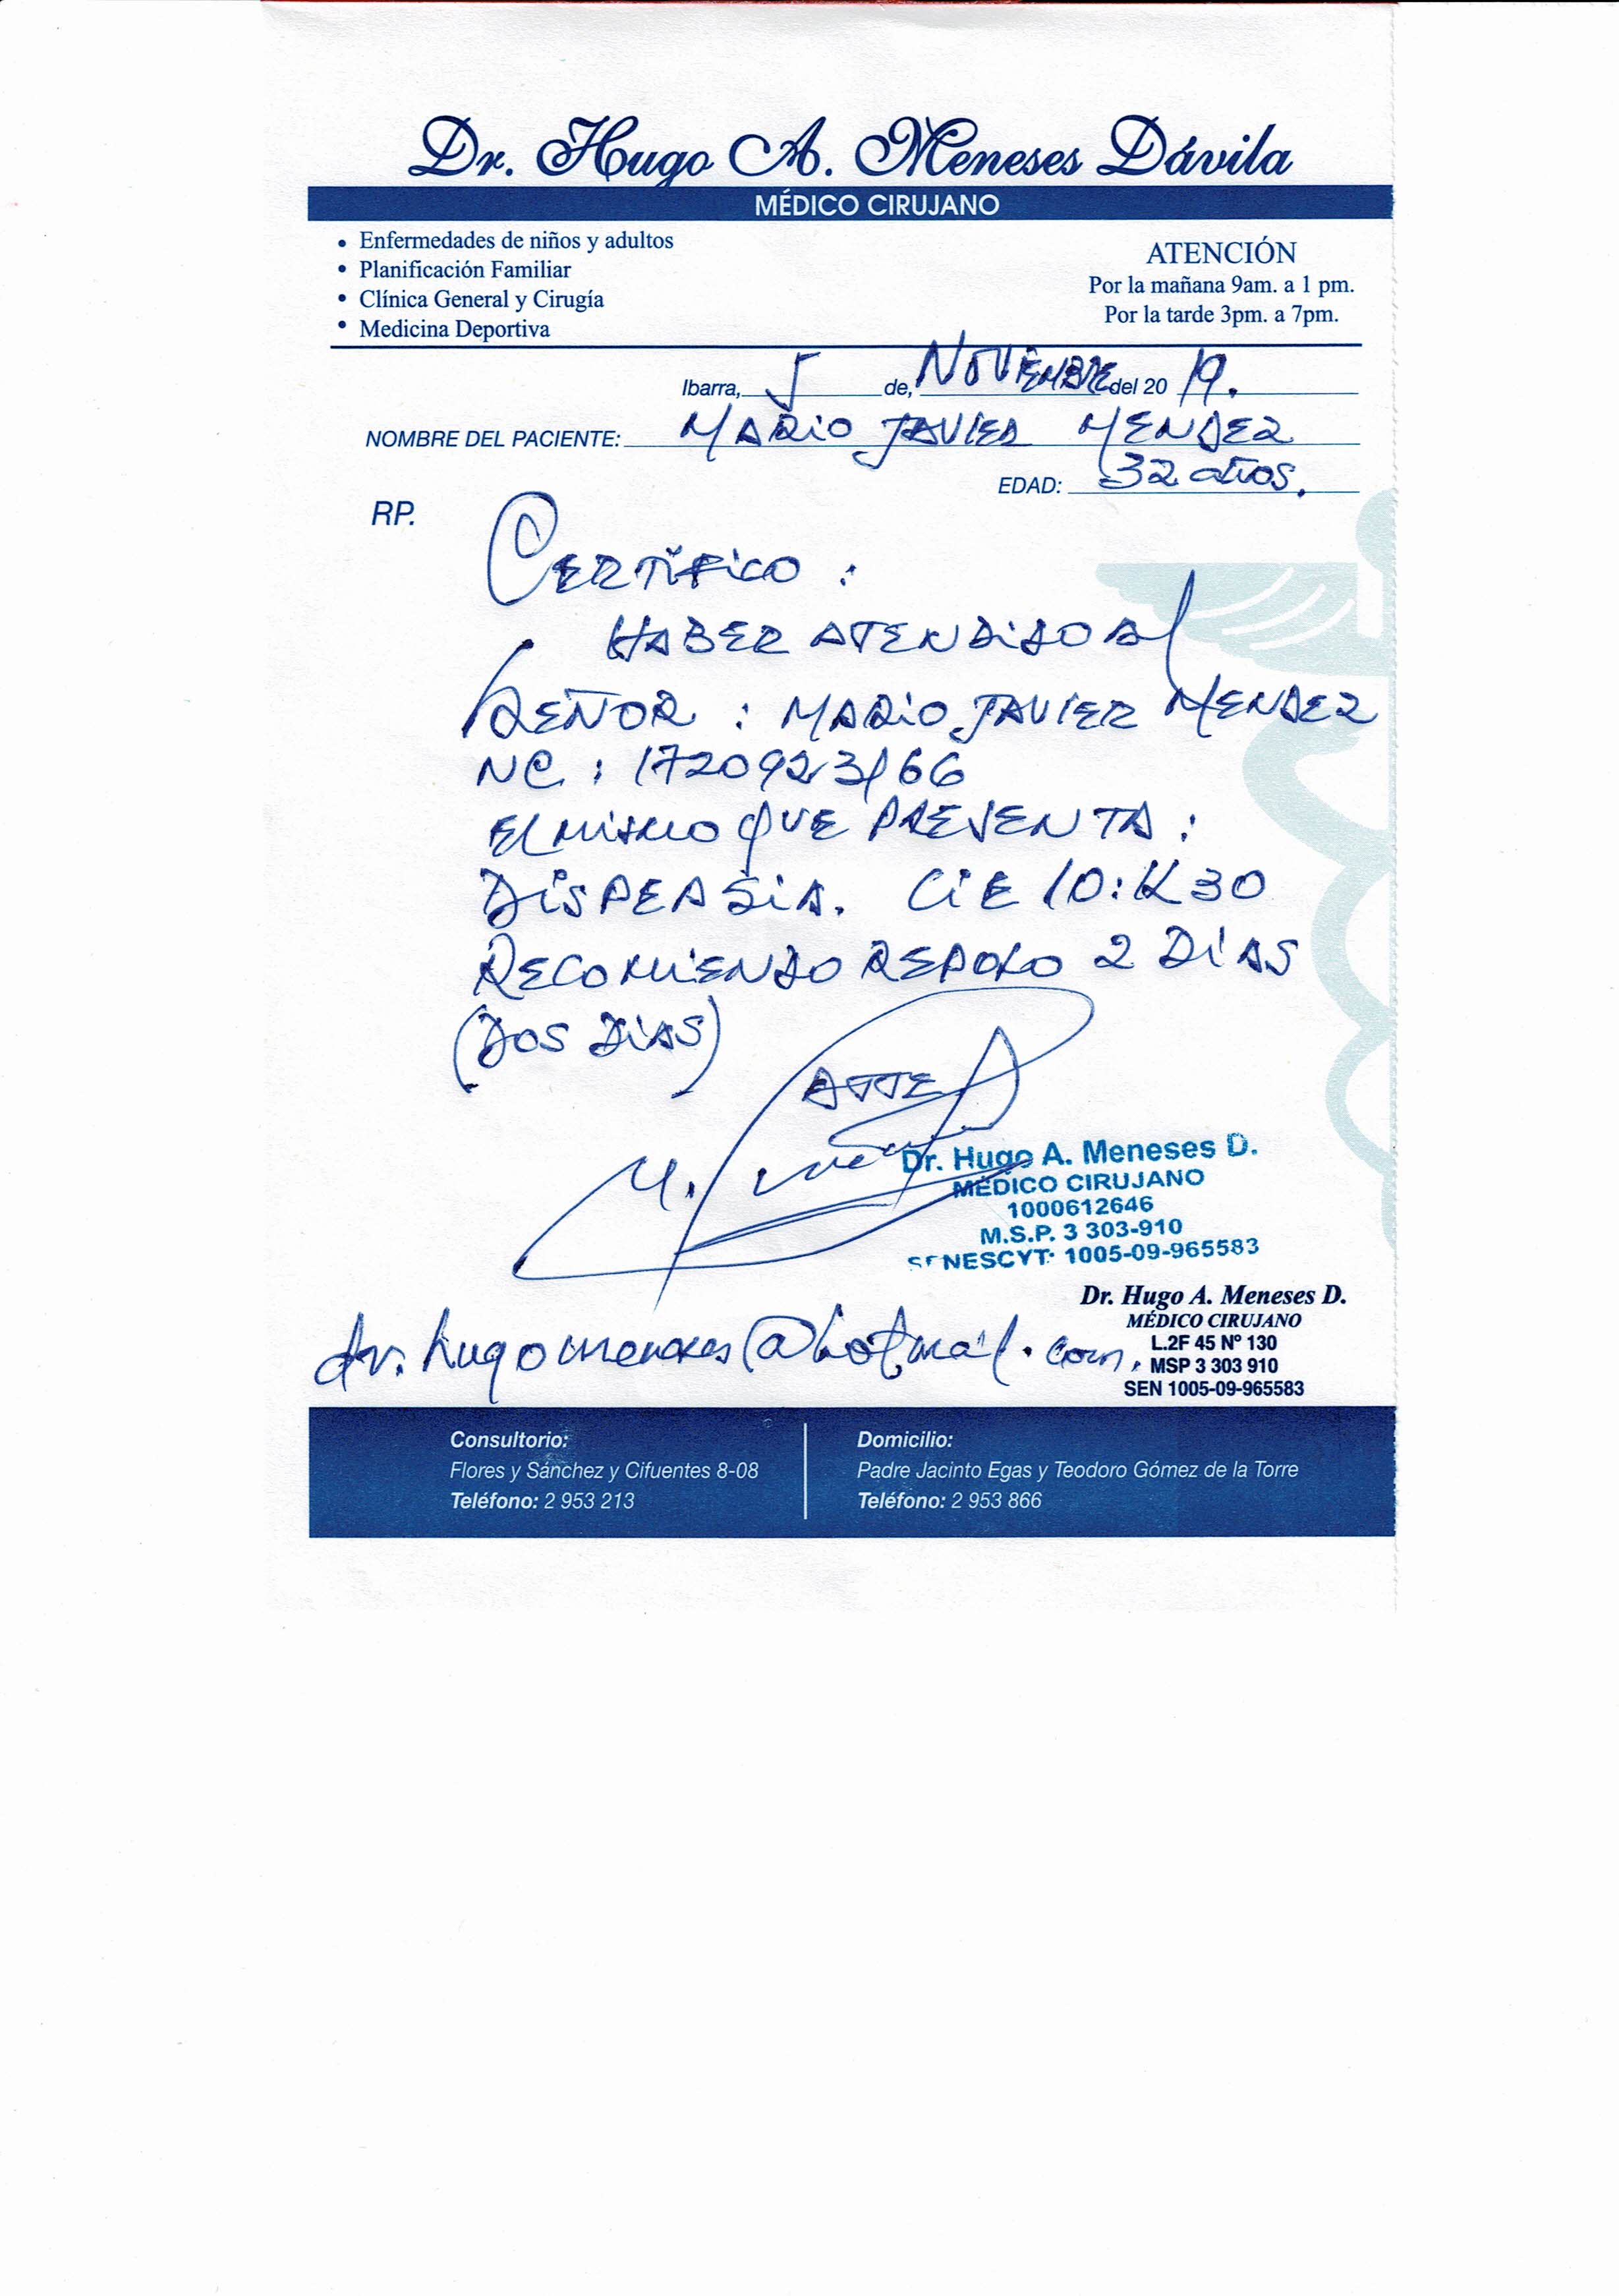 Dr. Hugo A. Meneses Dávila
MÉDICO CIRUJANO
• Enfermedades de niños y adultos
• Planificación Familiar
• Clínica General y Cirugía
• Medicina Deportiva
ATENCIÓN
Por la mañana 9am. a 1 pm.
Por la tarde 3pm. a 7pm.
Ibarra, 5 de, NOVIEMBRE del 20 19.
NOMBRE DEL PACIENTE: MARIO JAVIER MENDEZ
EDAD: 32 años.
RP.
CERTIFICO :
HABER ATENDIDO Al
SEÑOR : MARIO JAVIER MENDEZ
NC : 1720923166
El MISMO QUE PRESENTA :
DISPEPSIA. CIE 10: K30
RECOMIENDO REPOSO 2 DIAS
(DOS DIAS)
ATTE
Dr. Hugo A. Meneses D.
MÉDICO CIRUJANO
1000612646
M.S.P. 3 303-910
SENESCYT: 1005-09-965583
Dr. Hugo A. Meneses D.
MÉDICO CIRUJANO
L.2F 45 Nº 130
MSP 3 303 910
SEN 1005-09-965583
dr.hugomeneses@hotmail.com
Consultorio:
Flores y Sánchez y Cifuentes 8-08
Teléfono: 2 953 213
Domicilio:
Padre Jacinto Egas y Teodoro Gómez de la Torre
Teléfono: 2 953 866